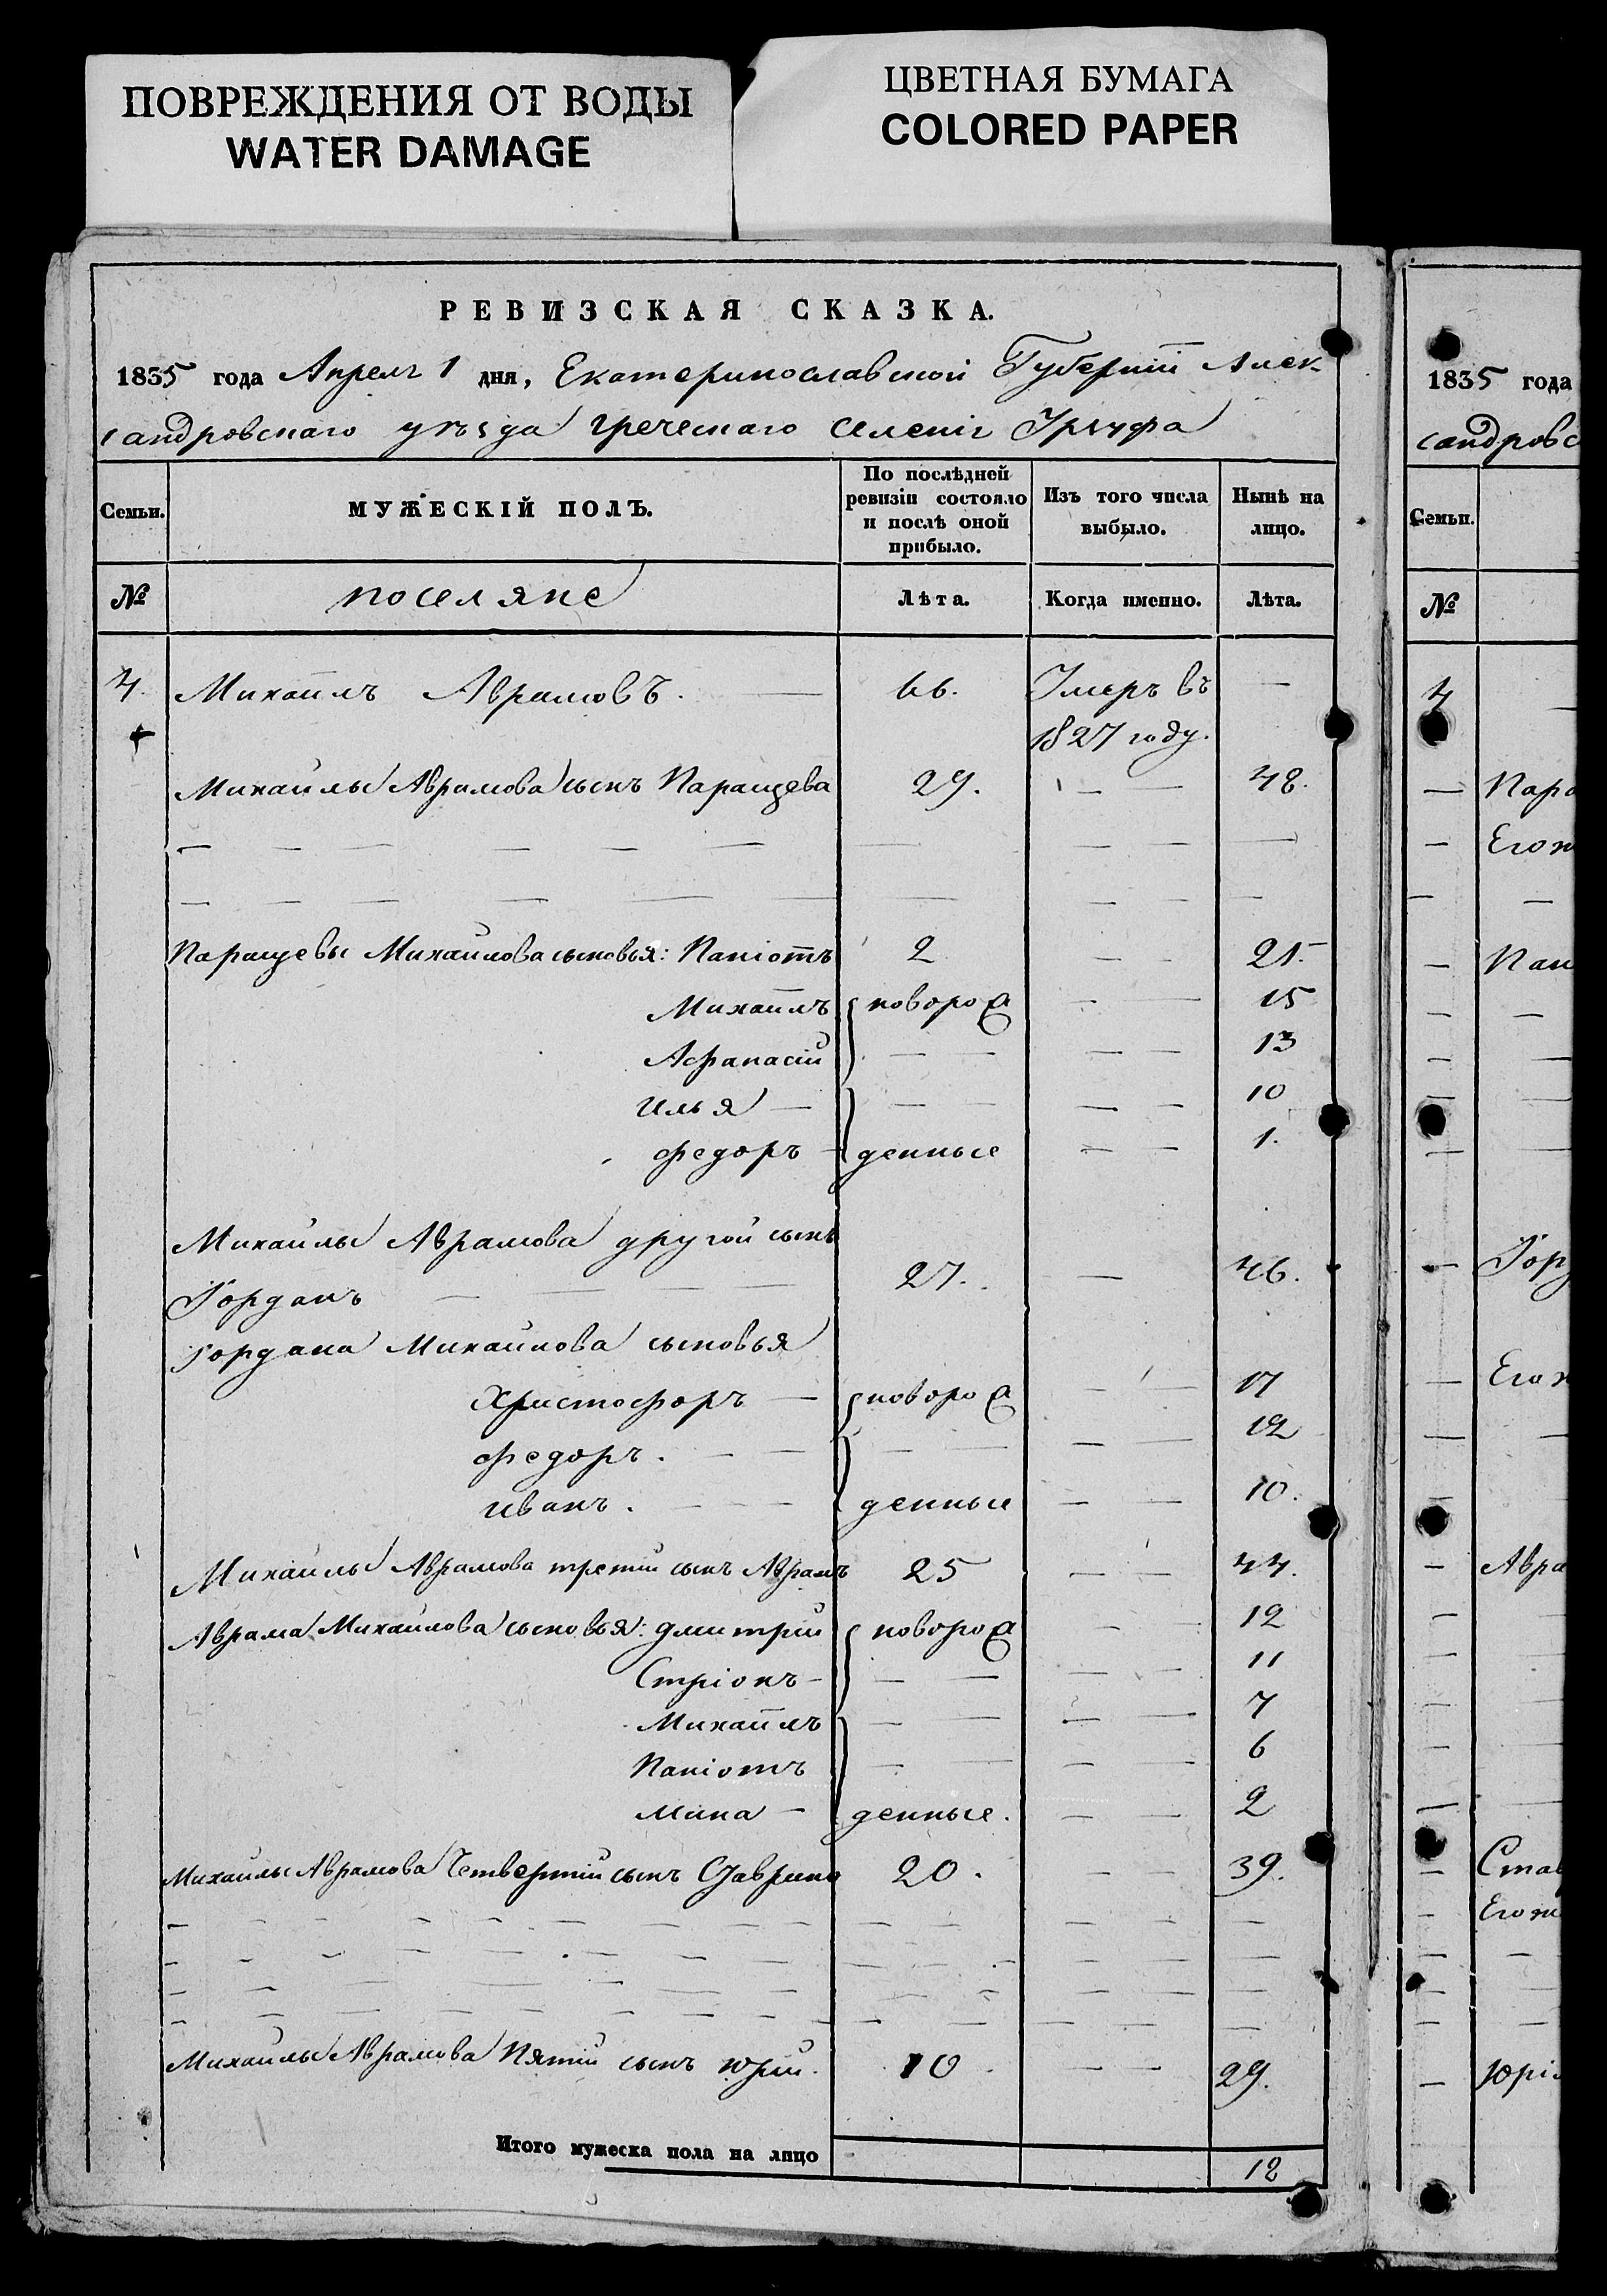 ПОВРЕЖДЕНИЯ ОТ ВОДЫ
WATER DAMAGE
ЦВЕТНАЯ БУМАГА
COLORED PAPER
РЕВИЗСКАЯ СКАЗКА.
1835 года Апреля 1 дня, Екатеринославской Губерніи Алек-
сандровскаго уѣзда греческаго селенія Урзуфа
Семьи. МУЖЕСКІЙ ПОЛЪ. По послѣдней ревизіи состояло и послѣ оной прибыло. Изъ того числа выбыло. Нынѣ на лицо.
№ поселяне Лѣта. Когда именно. Лѣта.
4. Михаилъ Аврамовъ. — 66. Умеръ въ —
1827 году.
Михаилы Аврамова сынъ Паращева 29. — — 48.
Паращевы Михайлова сыновья: Паніотъ 2 — — 21.
Михаилъ новорож 15
Афанасій — — 13
Илья — — — 10
Федоръ денные — — 1.
Михайлы Аврамова другой сынъ
Іорданъ — — — 27. — 46.
Іордана Михайлова сыновья
Христофоръ — новорож — — 17
Федоръ. — — — — 12
Иванъ. — — денные — — 10.
Михайлы Аврамова третій сынъ Аврамъ 25 — — 44.
Аврама Михайлова сыновья: Дмитрій новорож — — 12
Стріонъ — — — 11
Михаилъ — — — — 7
Паніотъ — — — — 6
Мина — денные. — — 2
Михайлы Аврамова Четвертій сынъ Ставрино 20. — — 39.
Михайлы Аврамова Пятій сынъ Юрій. 10. — — 29.
Итого мужеска пола на лицо 12
1835 года
сандровс
Семьи.
№
4
Пара
Его ж
Пан
Іорд
Его ж
Авра
Став
Его ж
Юрі